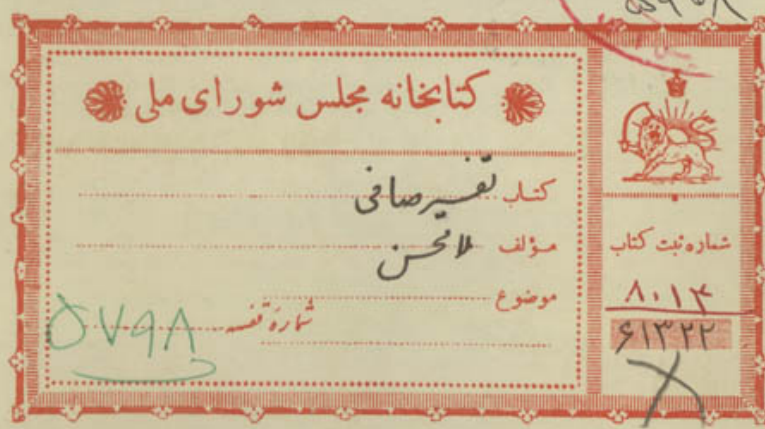 کتابخانه مجلس شورای ملی
کتاب تفسیر صافی
مؤلف ملا محسن
موضوع
شمارهٔ قفسه ۵۷۹۸
شماره ثبت کتاب
۸۰۱۴
۶۱۳۲۲